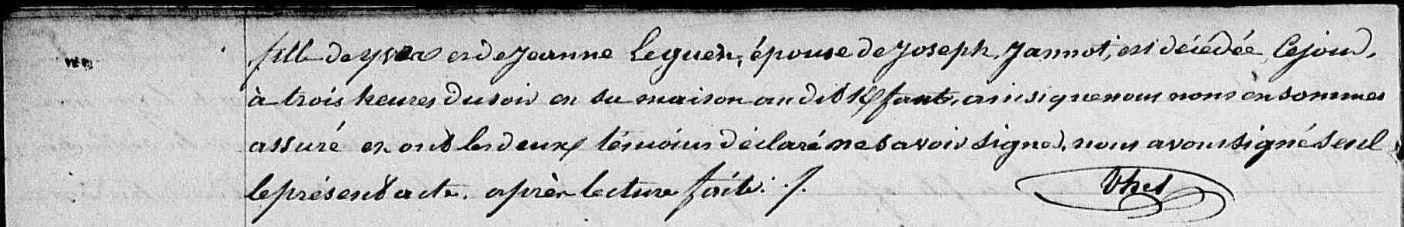 fille de yves et de Jeanne Leguen, épouse de Joseph Jannot, est décédée, Cejour,
à trois heures du soir en sa maison au dit Kfaut, ainsi que nous nous en sommes
assuré et ont les deux témoins déclaré ne savoir signer, nous avons signé seul
le présent acte. après lecture faite. /.